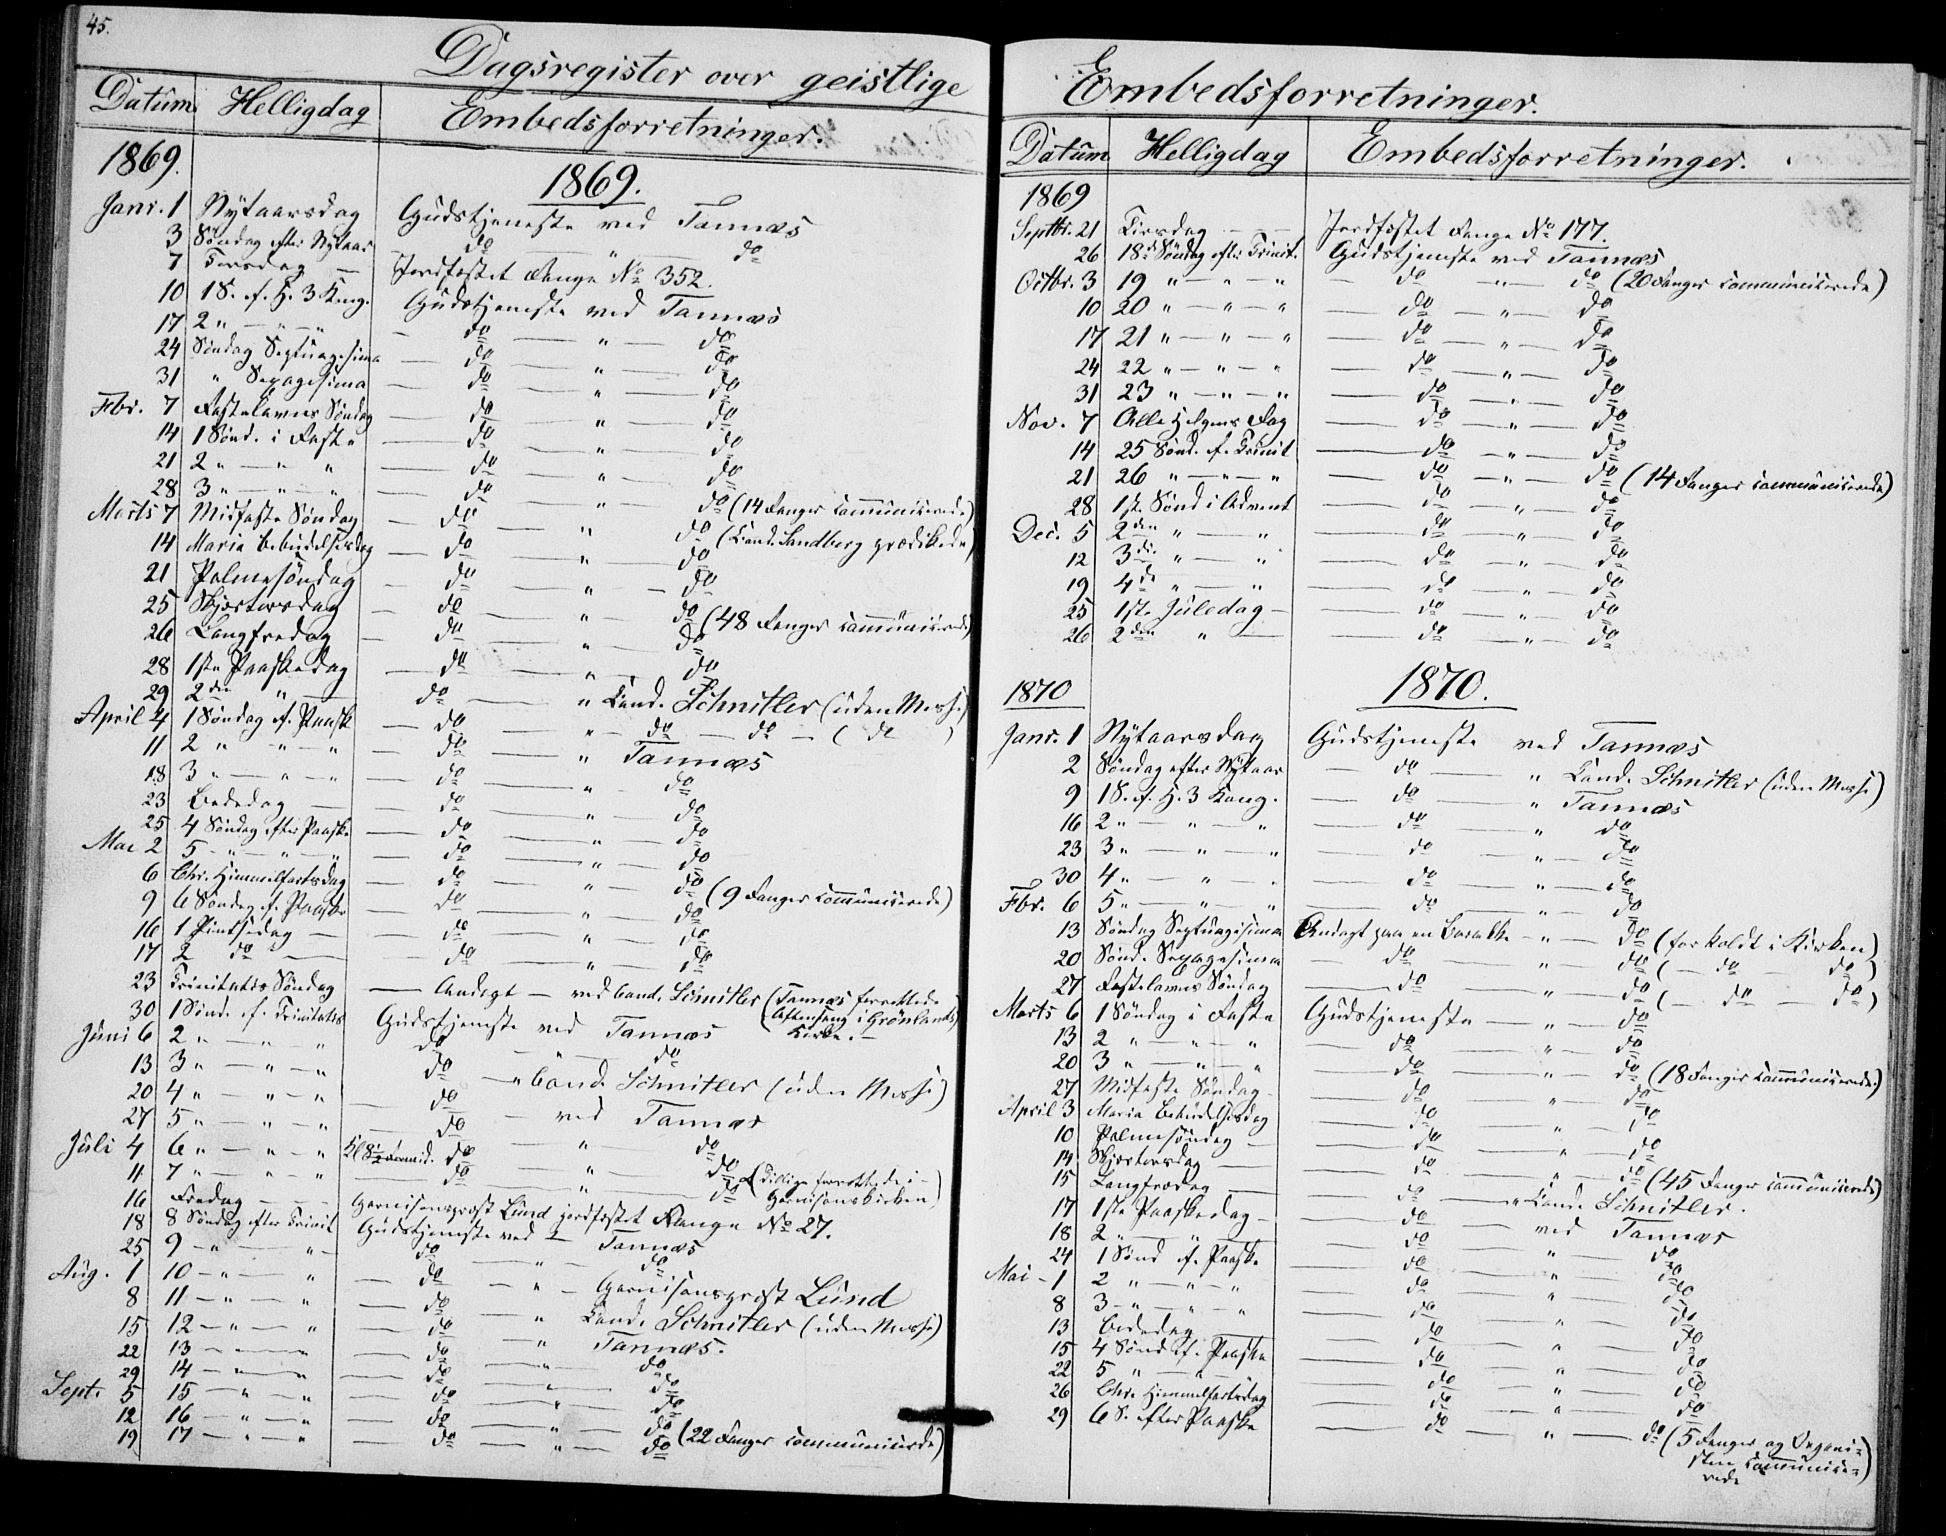 45.
Dagsregister over geistlige
Datum Helligdag Embedsforretninger.
1869. 1869.
Janr. 1 Nytaarsdag Gudstjeneste ved Tannæs
3 Søndag efter Nytaar do " do
7 Torsdag — Jordfæstet Fange No 352.
10 1 S. e. H. 3 Kong. Gudstjeneste ved Tannæs
17 2 " — " — " — do — " — do
24 Søndag Septuagesima — do — " — do
31 " Sexagesima — do — " — do
Fbr. 7 Fastelavns Søndag — do — " — do
14 1 Sønd. i Faste — do — " — do
21 2 " — " " — do — " — do
28 3 " — " — " — do — " — do
Marts 7 Midfaste Søndag — do — " — do (14 Fanger communicerede)
14 Maria Bebudelsesdag — do — " — do (Cand. Sandberg prædikede)
21 Palmesøndag — do — " — do
25 Skjærtorsdag — do — " — do (48 Fanger communicerede)
26 Langfredag — do — " — do
28 1ste Paaskedag — do — " — do
29 2den " — do — " Cand. Schnitler (uden Messe)
April 4 1 Søndag e. Paaske — do — " — do — do — ( do )
11 2 " — " — " — do — " Tannæs
18 3 " — " — " — do — " — do
23 Bededag — do — " — do
25 4 Søndag efter Paaske — do — " — do
Mai 2 5 — " — " — " — do — " — do
6 Chr. Himmelfartsdag — do — " — do (9 Fanger communicerede)
9 6 Søndag e. Paaske — do — " — do
16 1 Pintsedag — do — " — do
17 2 do — do — " — do
23 Trinitatis Søndag — Andagt — ved Cand. Schnitler (Tannæs forrettede
30 1 Sønd. e. Trinitatis Gudstjeneste ved Tannæs Aftensang i Grønlands
Kirke. —
Juni 6 2 " — " — " do — " — do
13 3 " — " — " do — " Cand. Schnitler (uden Messe)
20 4 " — " — " — do — ved Tannæs
27 5 " — " — " — do — " — do
Juli 4 6 " — " — " Kl 8½ Formid. do — " — do (Tillige forrettede i
11 7 " — " — " — do — " — do Garnisonskirken)
16 Fredag — Garnisonsprest Lund jordfæstet Fange No 27.
18 8 Søndag efter Trinit Gudstjeneste ved — Tannæs
25 9 — " — " — do — " — do
Aug. 1 10 — " — " — do — " — Garnisonsprest Lund
8 11 — " — " — do — " Cand. Schnitler (uden Messe)
15 12 — " — " — do — " Tannæs.
22 13 — " — " — do — " — do
29 14 — " — " — do — " — do
Sept. 5 15 — " — " — do — " — do
12 16 — " — " — do — " — do
19 17 — " — " — do — " — do (22 Fanger communicerede)
Embedsforretninger.
Datum Helligdag Embedsforretninger.
1869
Septbr. 21 Tirsdag — Jordfæstet Fange No 177.
26 18de Søndag efter Trinit. Gudstjeneste ved Tannæs
Octbr. 3 19 " — " — " — do — " — do (20 Fanger communicerede)
10 20 " — " — " — do — " — do
17 21 " — " — " — do — " — do
24 22 " — " — " — do — " — do
31 23 " — " — " — do — " — do
Nov. 7 Alle Helgens Dag — do — " — do
14 25 Sønd. e. Trinit — do — " — do
21 26 " — " — " — do — " — do (14 Fanger communicerede)
28 1ste Sønd i Advent — do — " — do
Dec. 5 2den " — " — do — " — do
12 3die " — " — do — " — do
19 4de " — " — do — " — do
25 1ste Juledag — do — " — do
26 2den " — do — " — do
1870 1870.
Janr. 1 Nytaarsdag Gudstjeneste ved Tannæs
2 Søndag efter Nytaar — do — " Cand. Schnitler (uden Messe)
9 1 S. e. H. 3 Kong. — do — " Tannæs
16 2 " — " — " — do — " do
23 3 " — " — " — do — " — do
30 4 " — " — " — do — " — do
Fbr. 6 5 " — " — " — do — " — do
13 Søndag Septuagesima Andagt paa en Barakke — " — do (forholdt i Kirken)
20 Sønd. Sexagesima — do — " — do ( — do do )
27 Fastelavns Søndag — do — " — do ( — do — do )
Marts 6 1 Søndag i Faste Gudstjeneste — " — do
13 2 " — " — " — do — " — do
20 3 " — " — " — do — " — do (18 Fanger communicerede)
27 Midfaste Søndag — do — " — do
April 3 Maria Bebudelsesdag — do — " — do
10 Palmesøndag — do — " — do
14 Skjærtorsdag — do — " — do (45 Fanger communicerede)
15 Langfredag — do — " Cand. Schnitler.
17 1ste Paaskedag — do — ved Tannæs
18 2 " — " — do — " — do
24 1 Sønd e. Paaske — do — " — do
Mai 1 2 " — " — " — do — " — do
8 3 — " — " — " — do — " — do
13 Bededag — do — " — do
15 4 Sønd. e. Paaske — do — " — do
22 5 " — " — do — " — do
26 Chr. Himmelfartsdag — do — " — do
29 6 S. efter Paaske — do — " — do (5 Fanger og Organi=
sten communice=
rede)